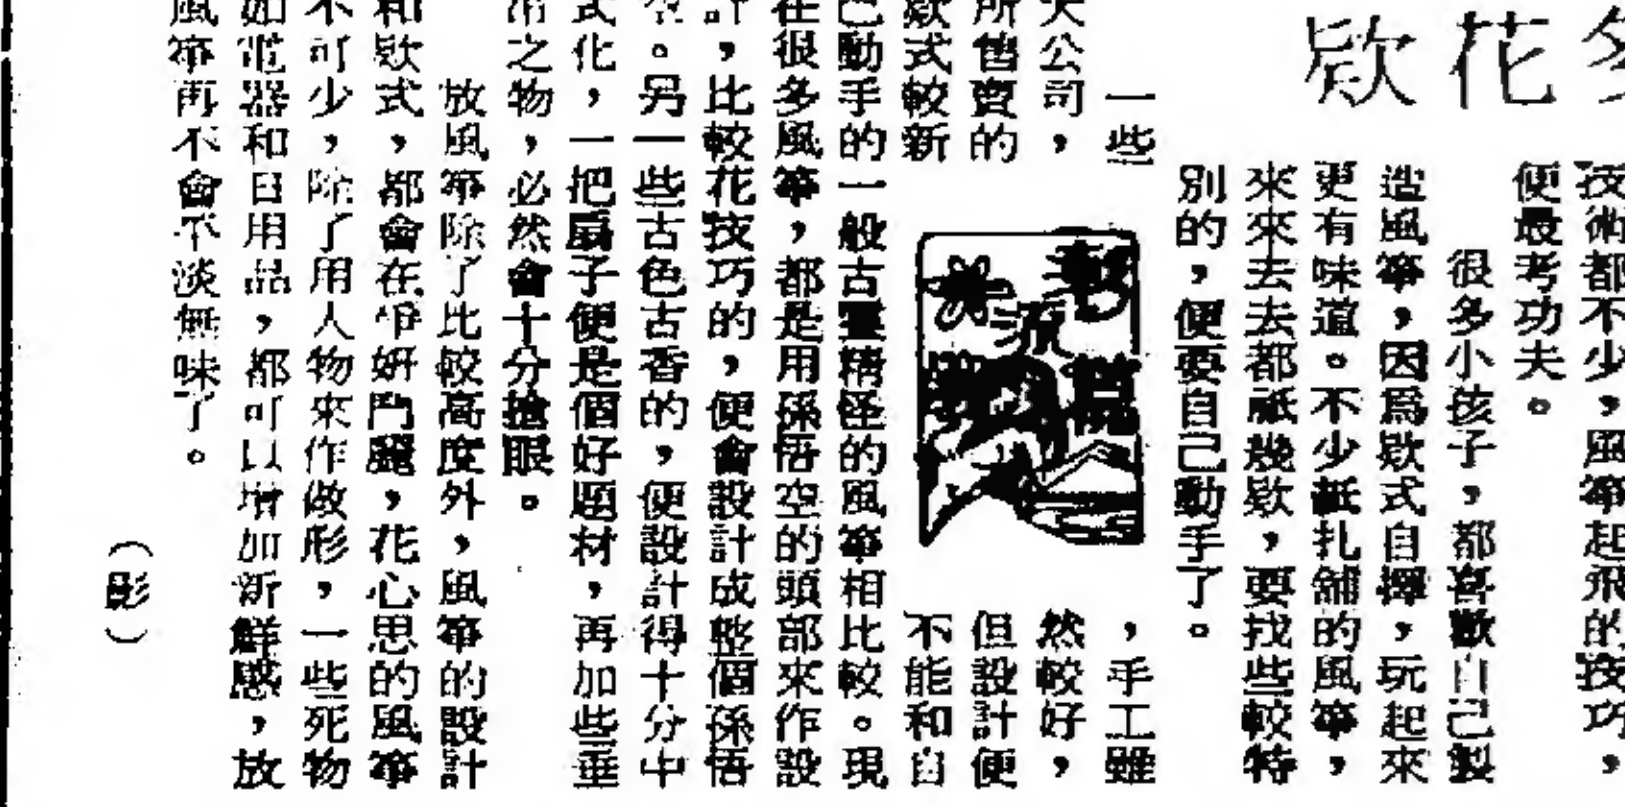 花欵
技術都不少，風箏起飛的技巧，
便最考功夫。
很多小孩子，都喜歡自己製
造風箏，因爲欵式自擇，玩起來
更有味道。不少紙扎舖的風箏，
來來去去都祇幾欵，要找些較特
別的，便要自己動手了。
一些
大公司，
所售賣的
欵式較新
，手工雖
然較好，
但設計便
不能和自
己動手的一般古靈精怪的風箏相比較。現
在很多風箏，都是用孫悟空的頭部來作設
計，比較花技巧的，便會設計成整個孫悟
空。另一些古色古香的，便設計得十分中
式化，一把扇子便是個好題材，再加些垂
吊之物，必然會十分搶眼。
放風箏除了比較高度外，風箏的設計
和欵式，都會在爭姸鬥麗，花心思的風箏
不可少，除了用人物來作做形，一些死物
如電器和日用品，都可以增加新鮮感，放
風箏再不會平淡無味了。
（彤）